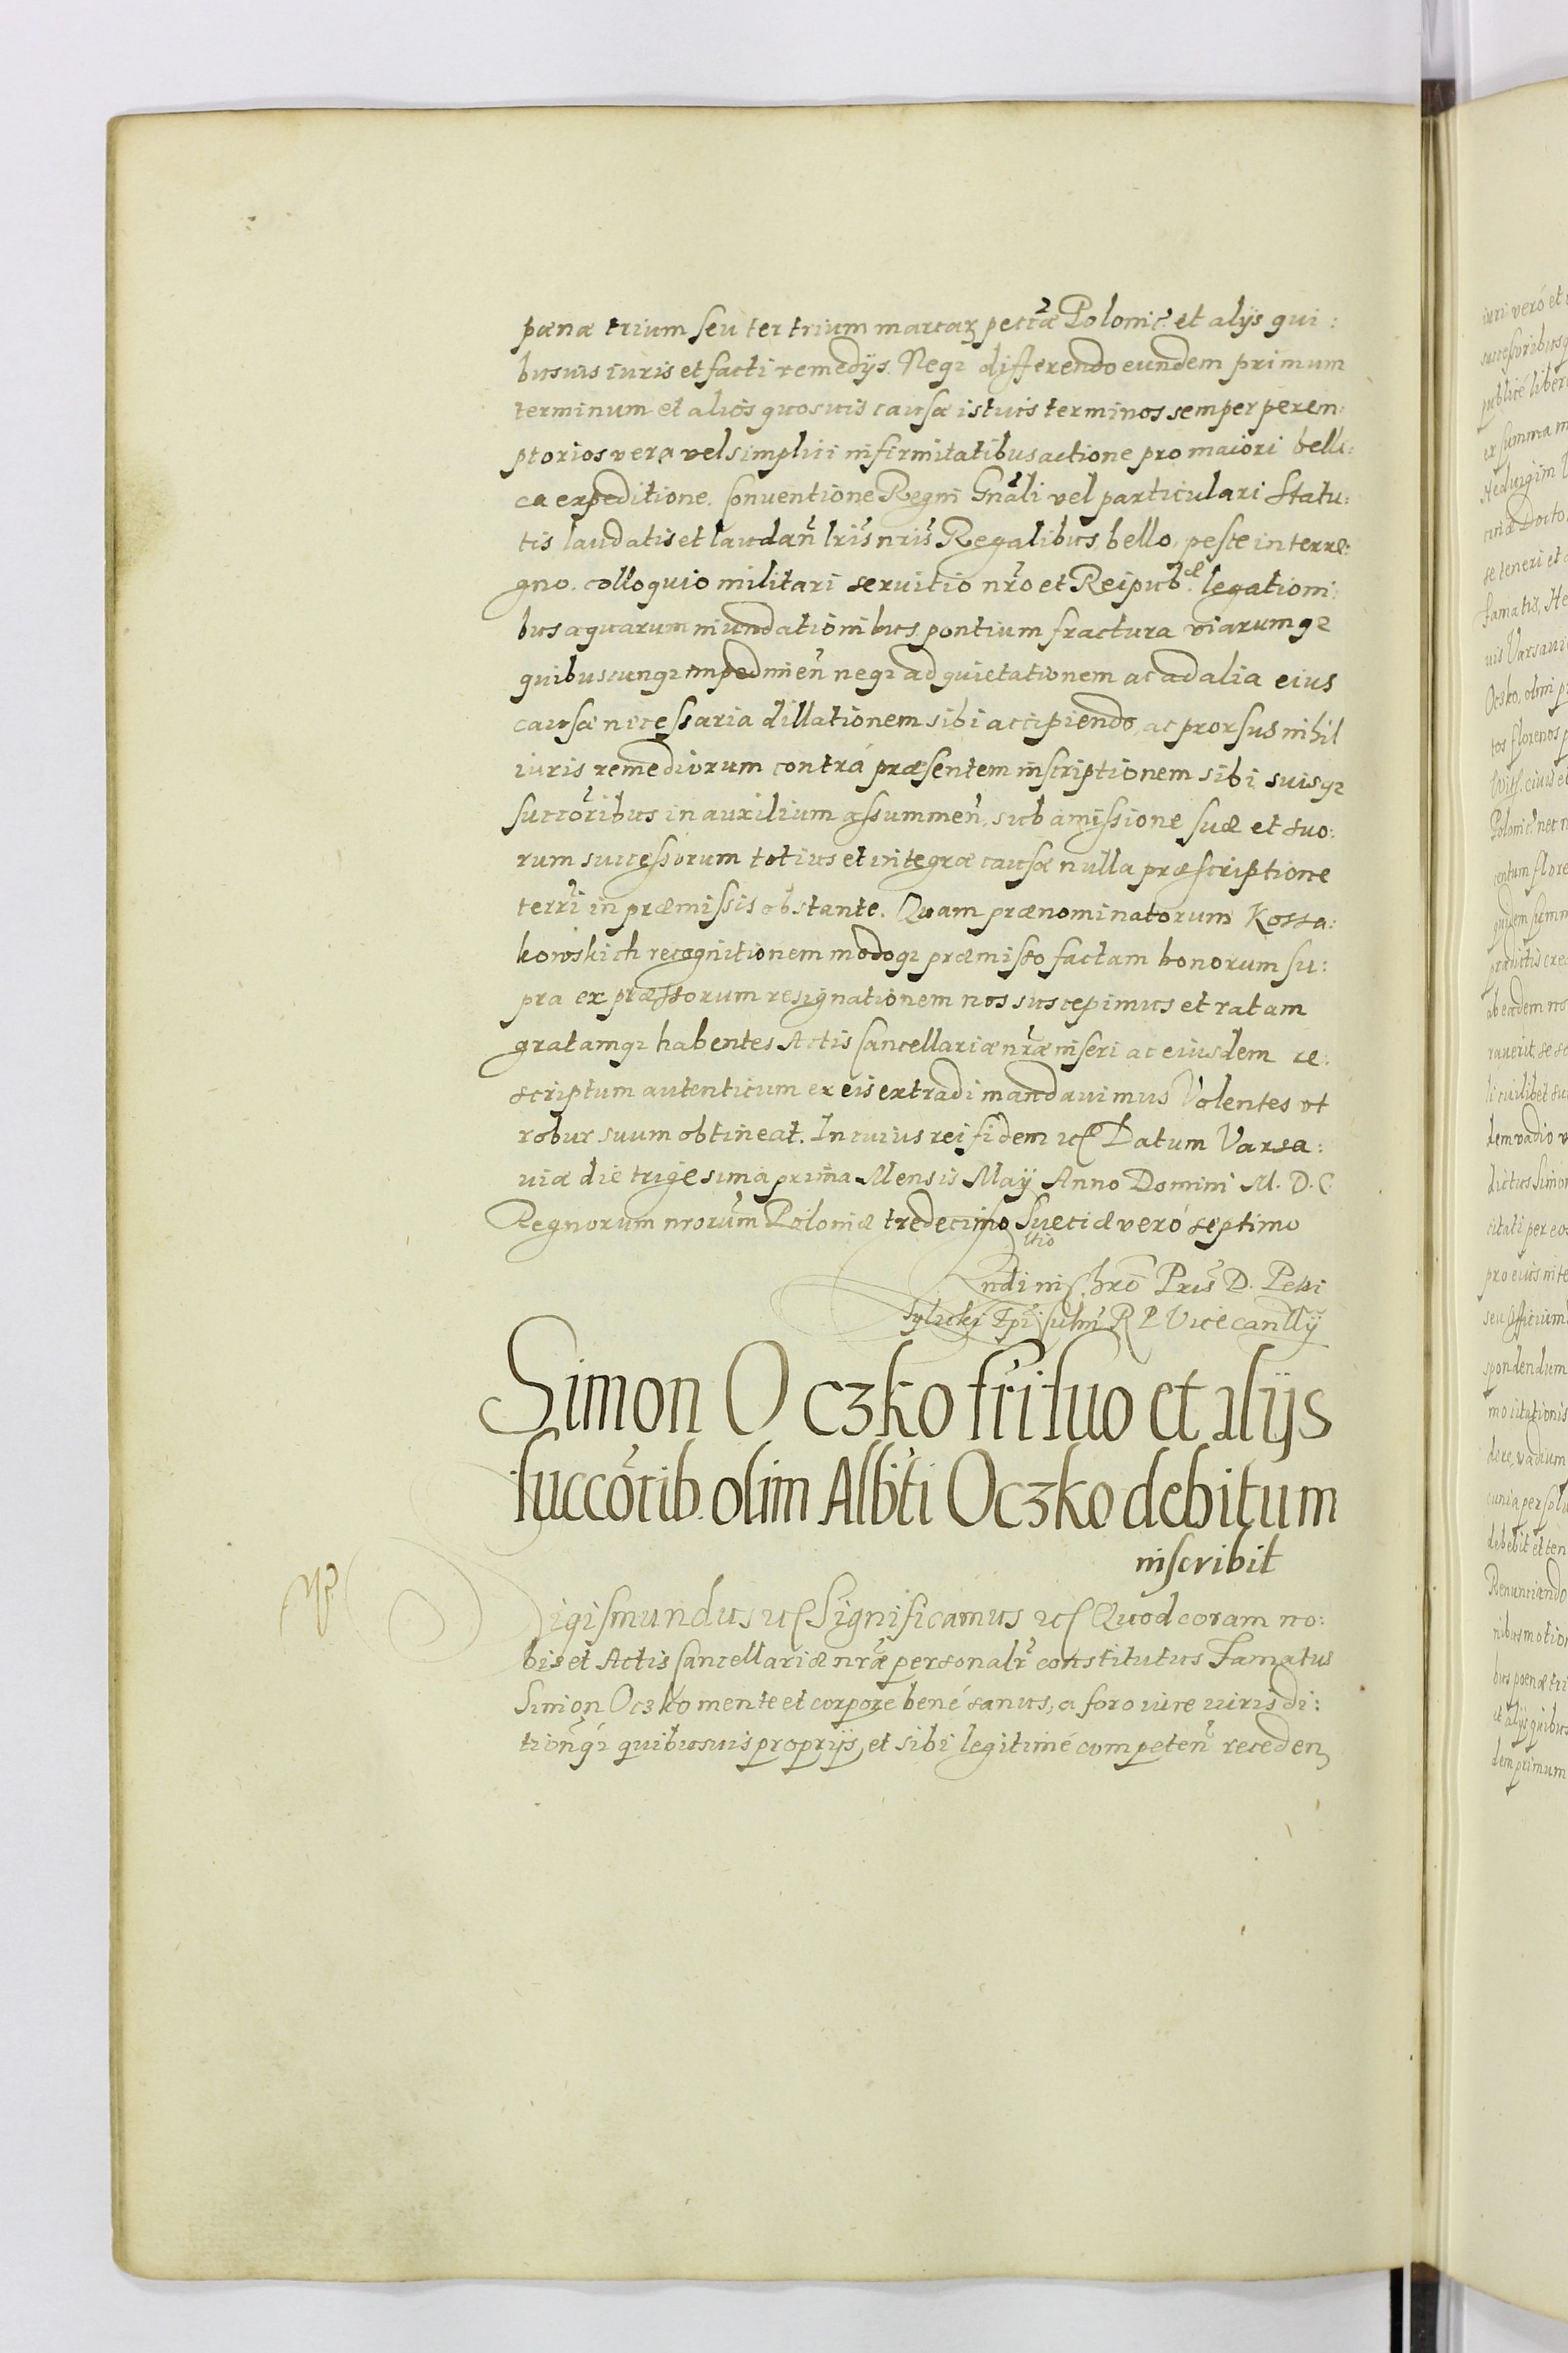 pœnæ trium seu ter trium marcarꝫ pecc̃æ Polonic̃ et alijs qui:
busuis iuris et facti remedijs. Neqꝫ differendo eundem primum
terminum et alios quosuis causæ istius terminos semper perem:
ptorios vera vel simplici infirmitatibus actione pro maiori belli:
ca expeditione. Conuentione Regni Gnãli vel particulari Statu:
tis laudatis et laudañ lris nris Regalibus, bello, peste interre:
gno. colloquio militari seruitio nr̃o et Reipub:cæ legationi:
bus aquarum inundationibus pontium fractura viarumqꝫ
quibuscunqꝫ impedimeñ neqꝫ ad quietationem ac ad alia eius
causæ necessaria dillationem sibi accipiendo, ac prorsus nihil
iuris remediorum contrá præsentem inscriptionem sibi suisqꝫ
succõribus in auxilium assummeñ, sub amissione suæ et suo:
rum successorum totius et integræ causæ nulla præscriptione
terr̃i in præmissis obstante. Quam prænominatorum Kossa:
kowskich recognitionem modoqꝫ præmisso factam bonorum su:
pra expressorum resignationem nos suscepimus et ratam
gratamqꝫ habentes Actis Cancellariæ nr̃æ inseri ac eiusdem re:
scriptum autenticum ex eis extradi mandauimus Volentes vt
robur suum obtineat. In cuius rei fidem ꝛc Datum Varsa:
uiæ die trigesima prima Mensis Maij Anno Domini M.D.C.
Regnorum nrorum Poloniæ tredecimo Sueciæ veró septimo
ltio
Rndi in Chrõ Pris D. Petri
Tylicki Epi Culm̃ R P Vicecancllij
Simon Oczko fr̃i suo et alijs
succõrib. olim Alb̃ti Oczko debitum
inscribit
Sigismundus ꝛc Significamus ꝛc Quod coram no:
bis et Actis Cancellariæ nr̃æ personalr̃ constitutus Famatus
Simon Oczko mente et corpore bené sanus, a foro iure iurisdi:
tioñqꝫ quibusuis proprijs, et sibi legitimé competeñ receden